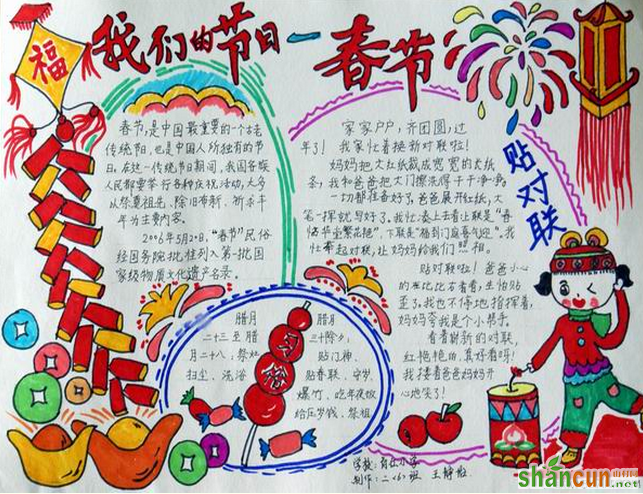 福
我们的节日—春节
春节,是中国最重要的一个古老
传统节,也是中国人所独有的节
日。在这一传统节日期间,我国各族
人民都要举行各种庆祝活动,大多
以祭奠祖先、除旧布新、祈求丰
年为主要内容。
2006年5月20日,“春节”民俗
经国务院批准列入第一批国
家级物质文化遗产名录。
家家户户,齐团圆,过
年了!我家忙着换新对联啦!
妈妈把大红纸裁成宽宽的大纸
条,我和爸爸把大门擦洗得干干净净。
一切都准备好了,爸爸展开红纸,大
笔一挥就写好了。我忙凑上去看上联是“春
临华堂繁花艳”,下联是“福到门庭喜气迎”。我
忙举起对联,让妈妈给我们照相。
贴对联
贴对联啦!爸爸小心
的在比比右看看,生怕贴
歪了。我也不停地指挥着,
妈妈夸我是个小帮手。
看着崭新的对联,
红艳艳的,真好看呀!
我望着爸爸妈妈开
心地笑了!
腊月
二十三至腊
月二十八,祭灶
扫尘、洗浴
腊月
三十除夕:
贴门神、
贴春联、守岁、
爆竹、吃年夜饭
给压岁钱、祭祖
学校:
制作:二(6)班 王静
shancun
.net